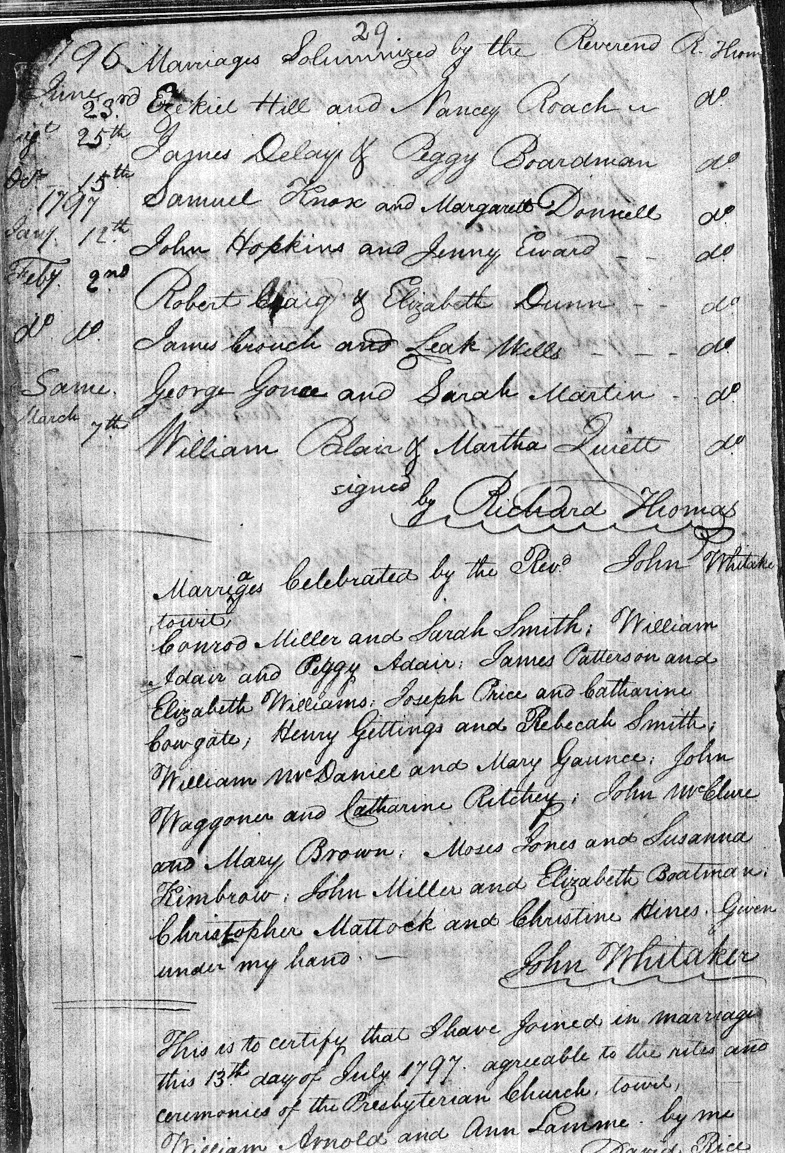 29
1796 Marriages Solumnized by the Reverend R. Thom
June 23rd Ezekiel Hill and Nancy Roach do
25th James Delay & Peggy Boardman do
Oct 15th Samuel Knox and Margarett Donnell do
1797
Jany. 12th John Hopkins and Jenny Eward - - do
Feby. 2nd Robert Craig & Elizabeth Dunn - - do
do do. James Crouch and Leah Wells - - - do
Same. George Gonce and Sarah Martin - - do
March 7th William Blair & Martha do
signed by Richard Thomas
Marriages Celebrated by the Revd John Whitake
towit,
Conrod Miller and Sarah Smith; William
Adair and Peggy Adair; James Patterson and
Elizabeth Williams; Joseph Price and Catharine
Cowgate; Henry Gettings and Rebecah Smith;
William McDaniel and Mary Gaunce; John
Waggoner and Catharine Ritchey; John McClure
and Mary Brown; Moses Jones and Susanna
Kimbrow; John Miller and Elizabeth Boatman;
Christopher Mattock and Christine Hines. Given
under my hand. —
John Whitaker
This is to certify that I have Joined in marriage
this 13th day of July 1797. agreeable to the rites and
ceremonies of the Presbyterian Church, towit,
William Arnold and Ann Lamme. by me
David Rice